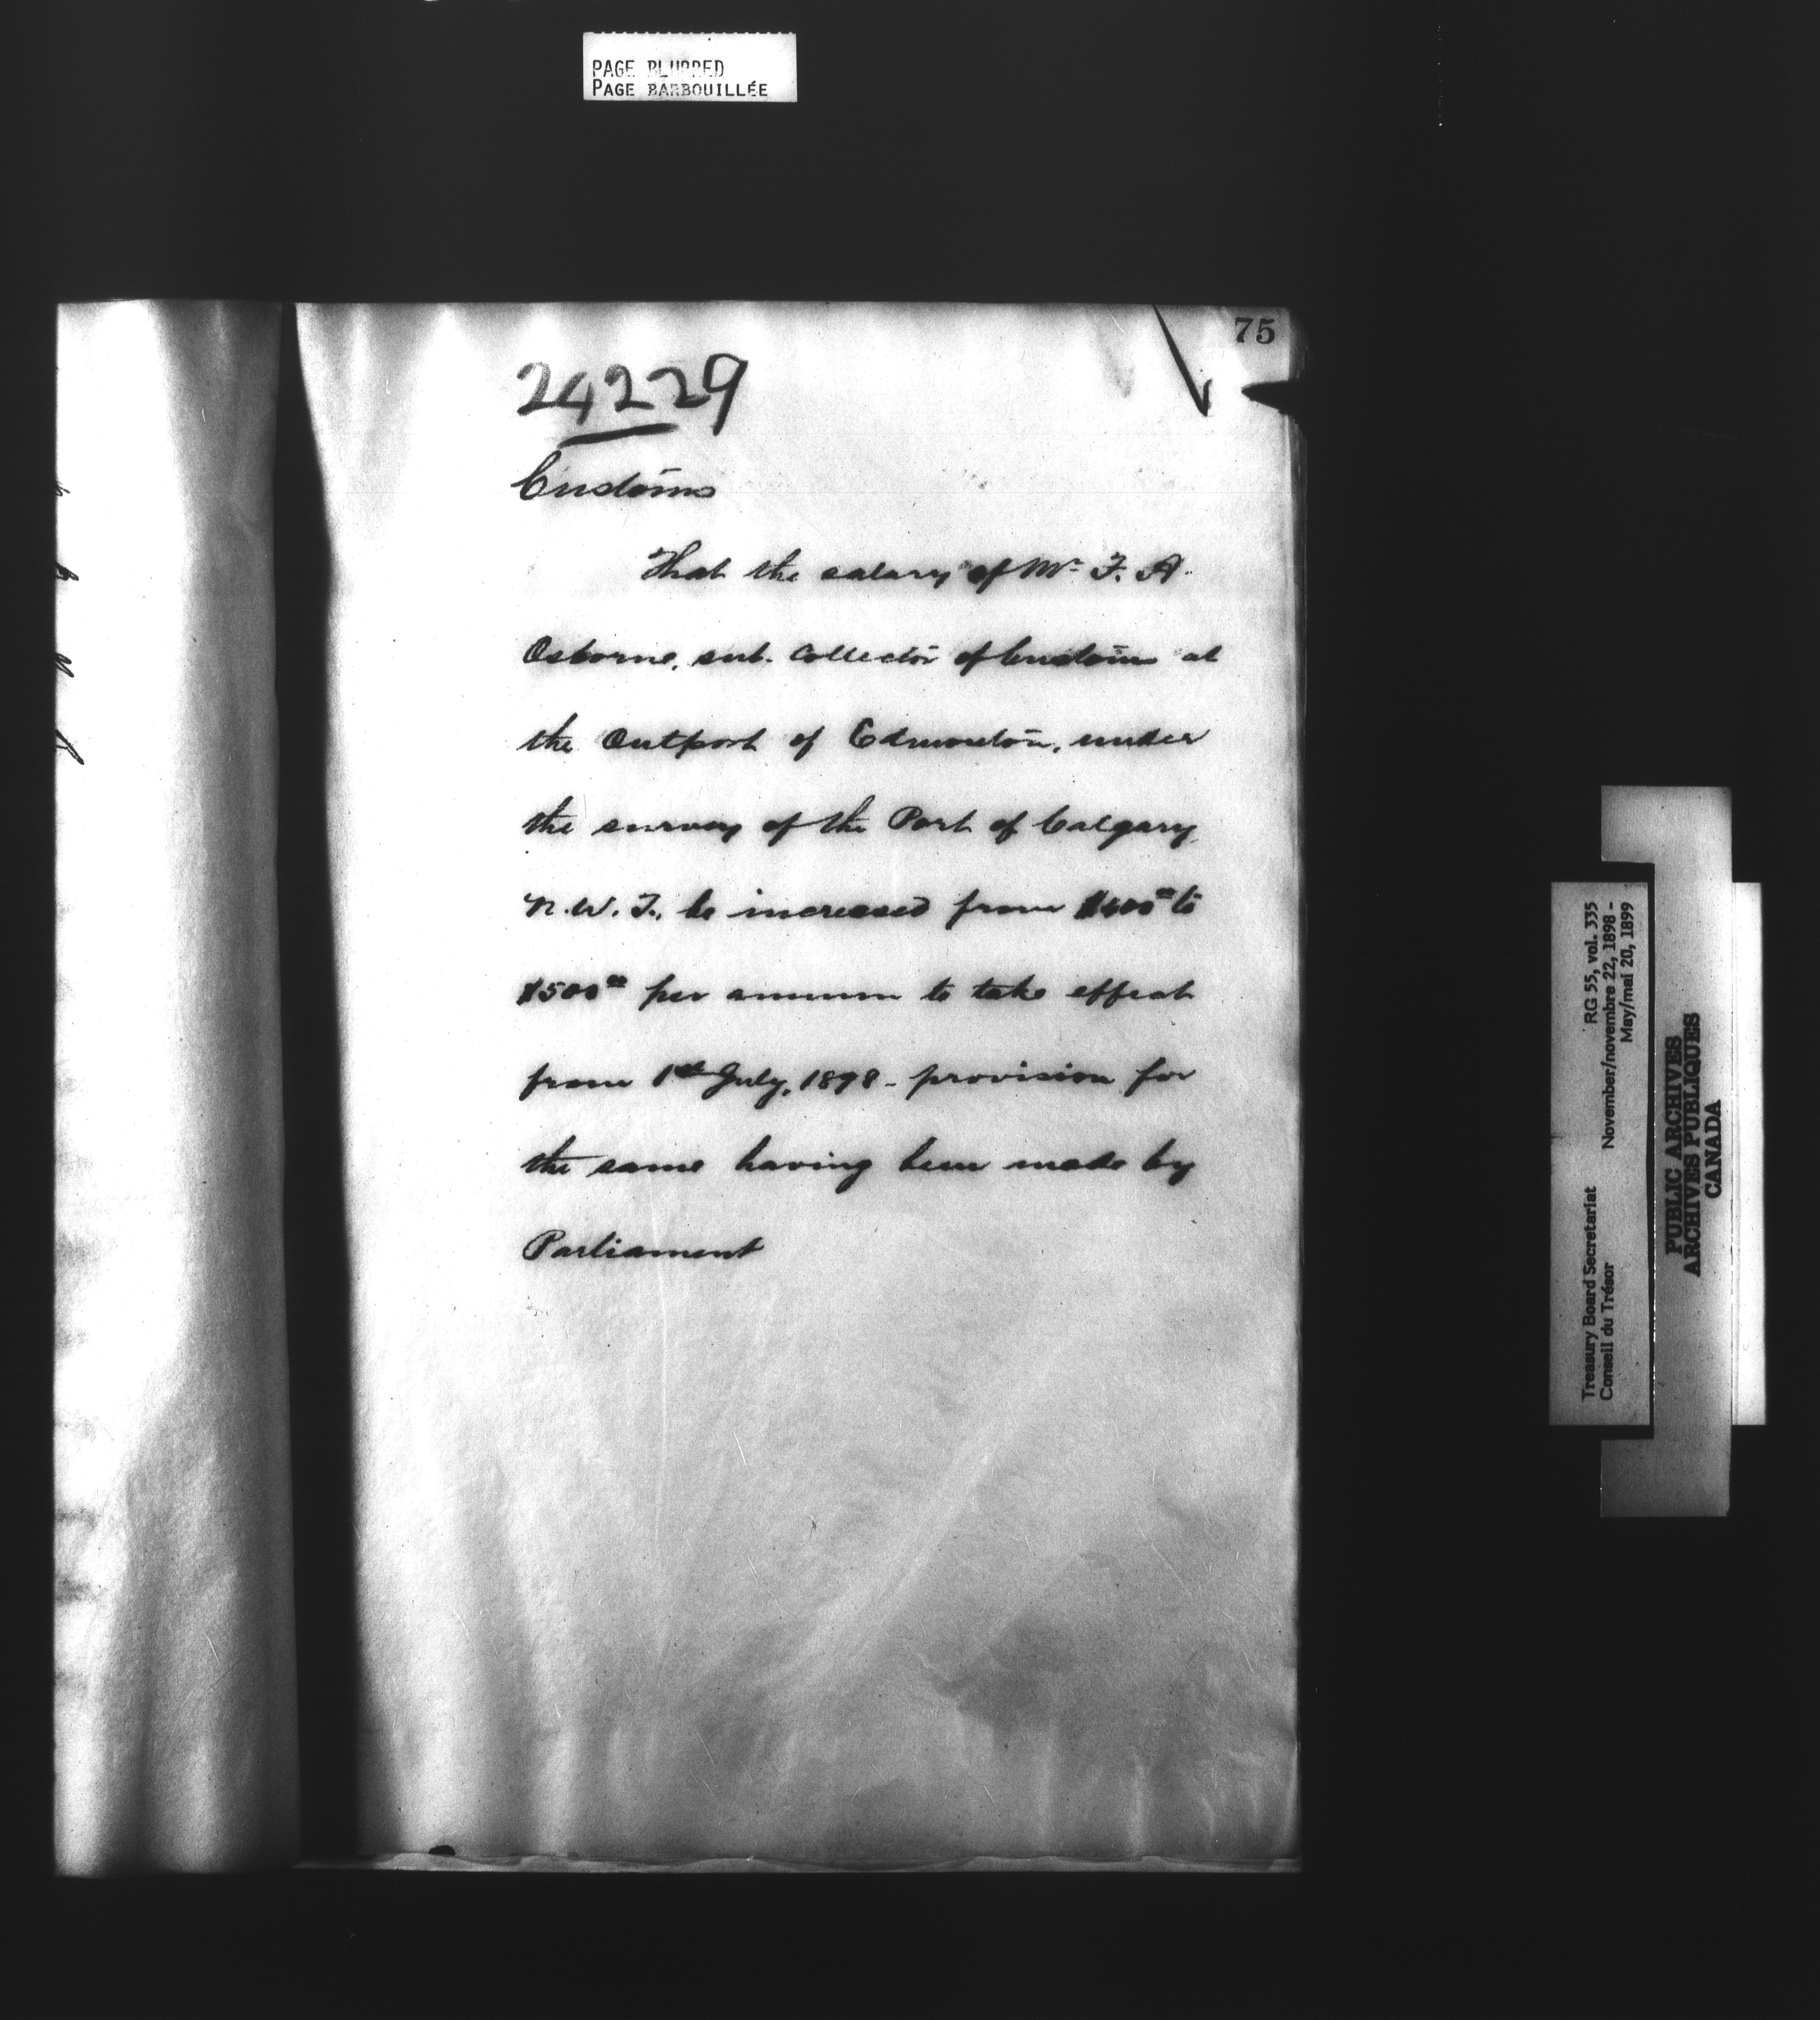 PAGE BLURRED
PAGE BARBOUILLÉE
75
24229
Customs
That the salary of Mr. F. A.
Osborne, sub. Collector of Customs at
the Outport of Edmonton, under
the survey of the Port of Calgary,
N.W.T., be increased from $400⁰⁰ to
$500⁰⁰ per annum to take effect
from 1st July, 1898 - provision for
the same having been made by
Parliament
Treasury Board Secretariat RG 55, vol. 335
Conseil du Trésor November/novembre 22, 1898 -
May/mai 20, 1899
PUBLIC ARCHIVES
ARCHIVES PUBLIQUES
CANADA